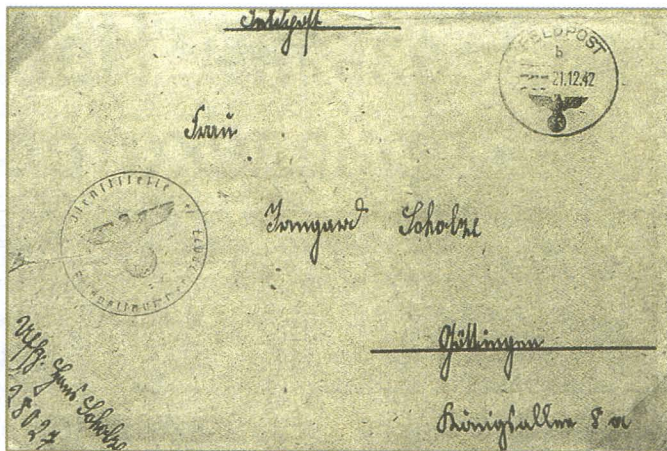 Feldpost
FELDPOST
b
21.12.42
Frau
Irmgard Scholze
Dienststelle
Göttingen
Königsallee 8 a
Uffz. Hans Scholze
28027